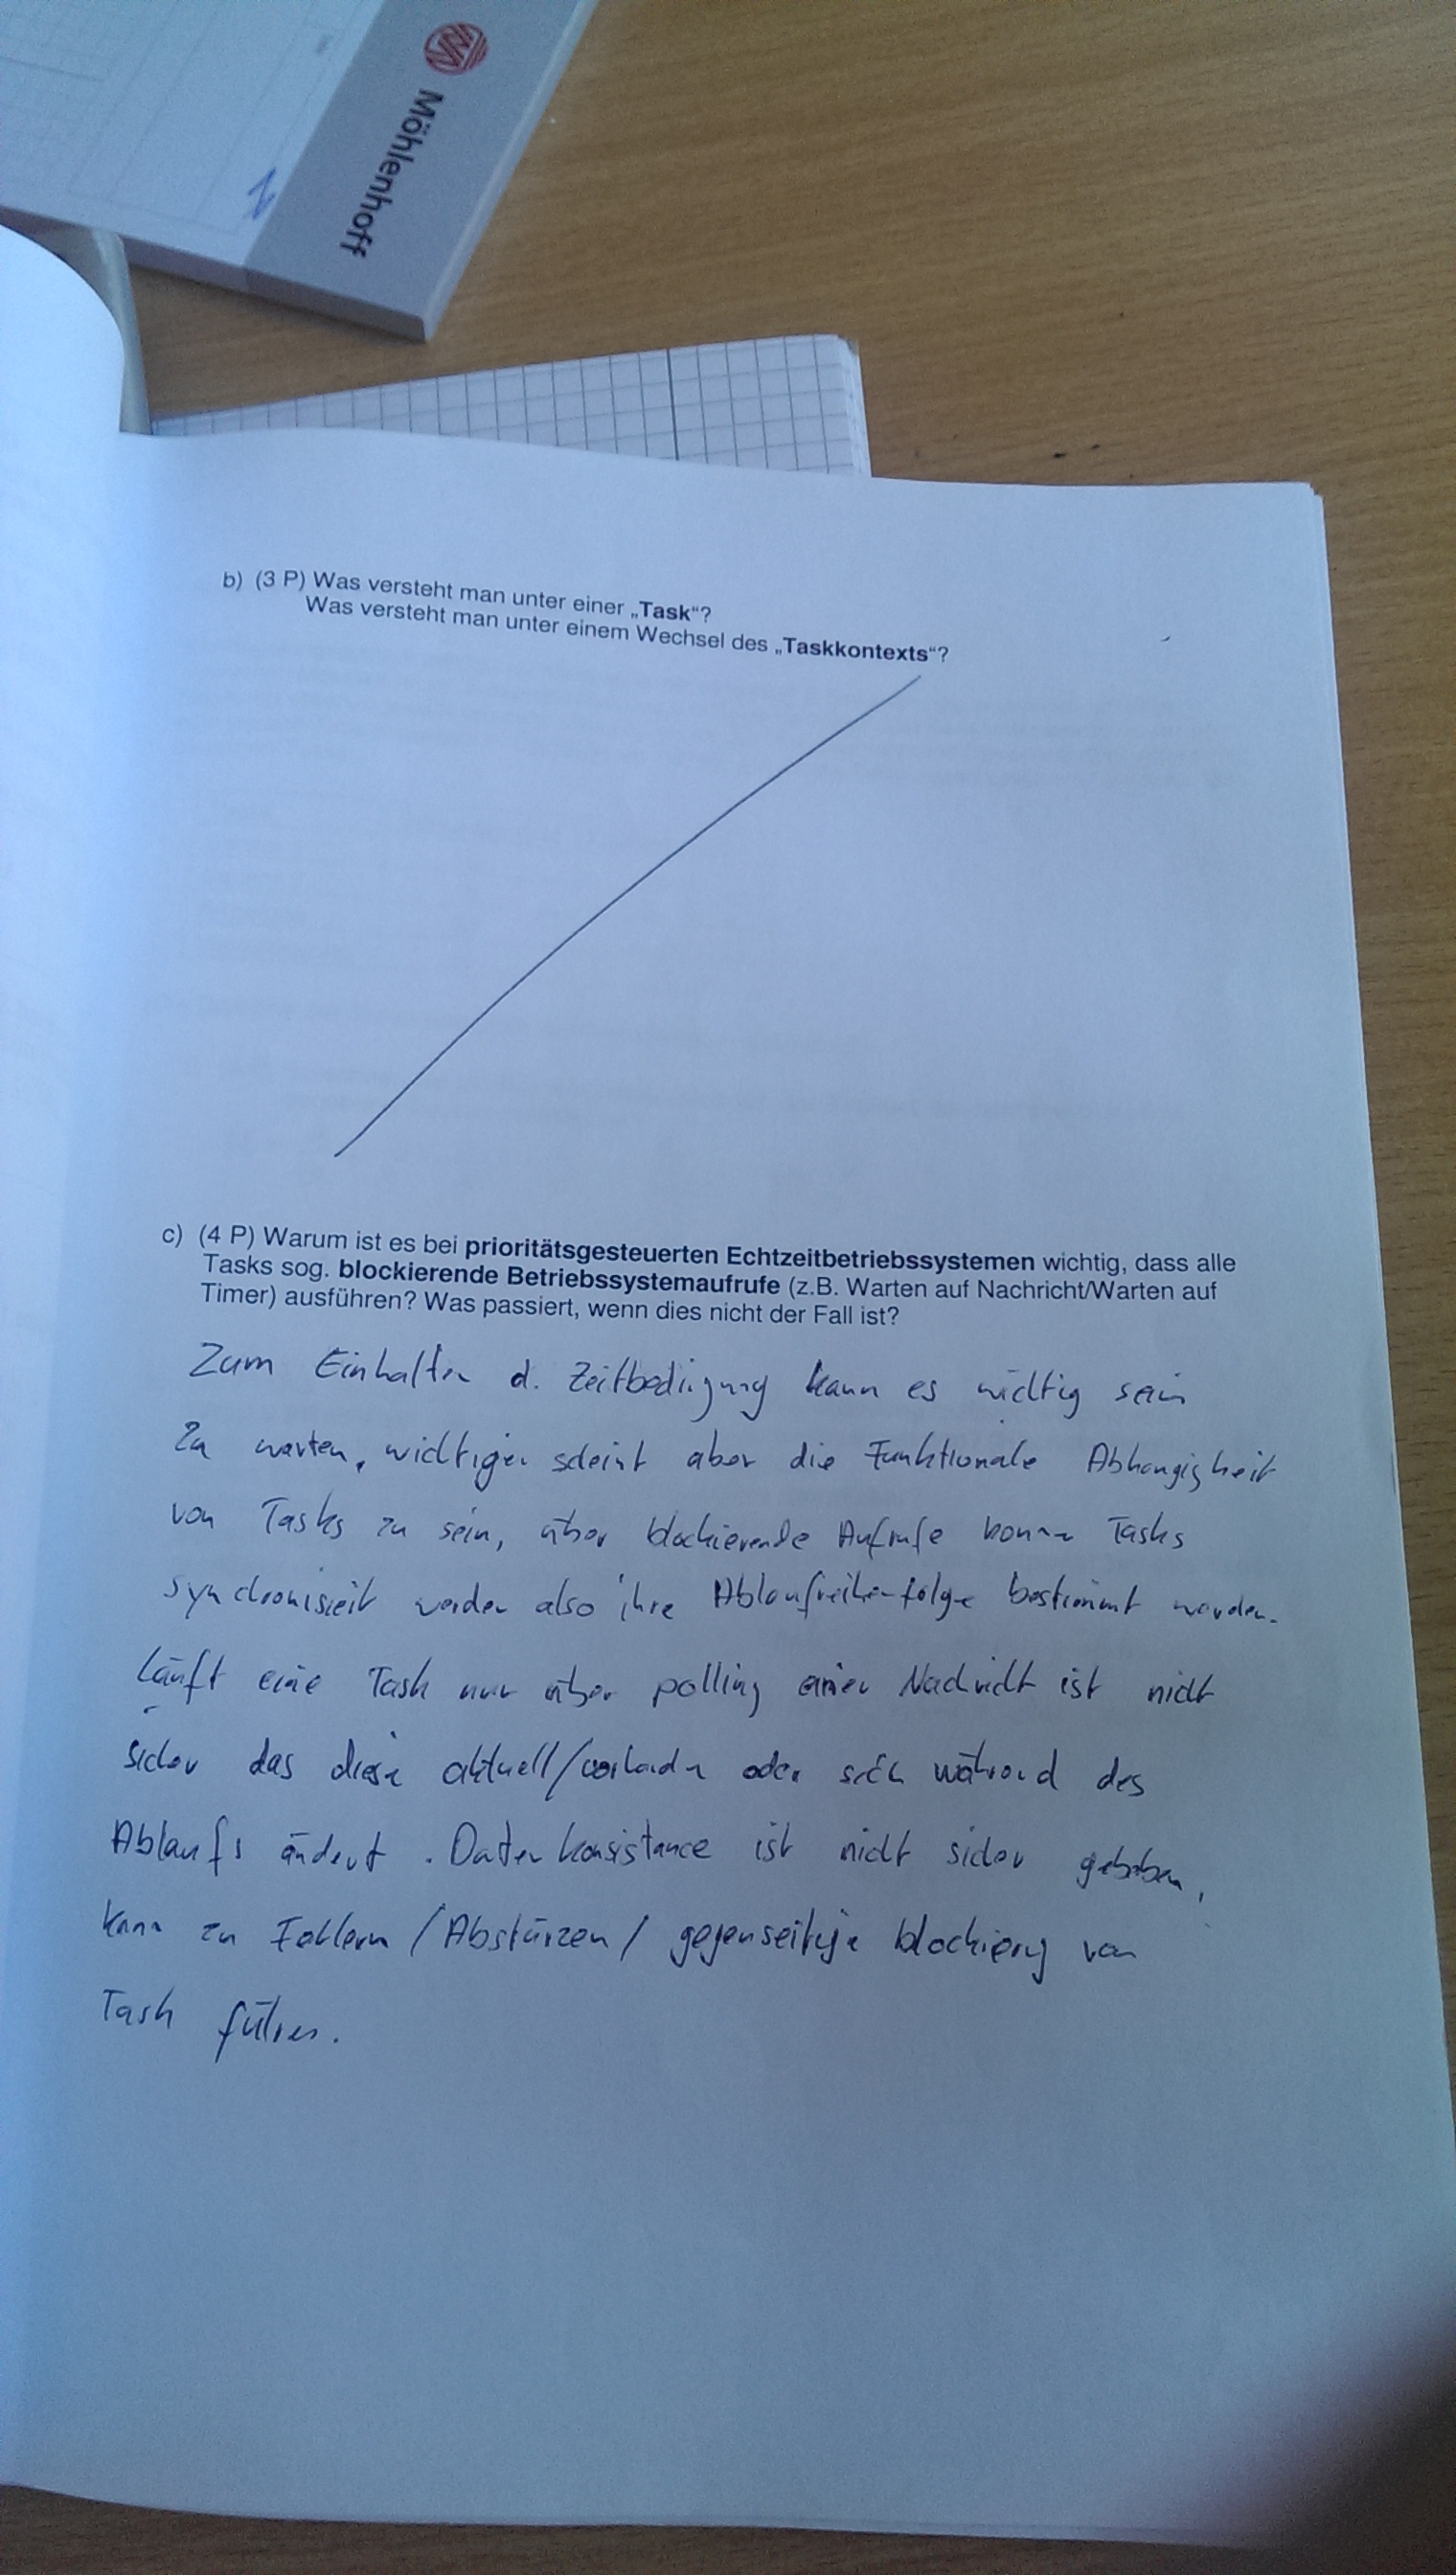 Möhlenhoff
b) (3 P) Was versteht man unter einer „Task“?
Was versteht man unter einem Wechsel des „Taskkontexts“?
c) (4 P) Warum ist es bei prioritätsgesteuerten Echtzeitbetriebssystemen wichtig, dass alle
Tasks sog. blockierende Betriebssystemaufrufe (z.B. Warten auf Nachricht/Warten auf
Timer) ausführen? Was passiert, wenn dies nicht der Fall ist?
Zum Einhalten d. Zeitbedingung kann es wichtig sein
zu warten, wichtiger scheint aber die Funktionale Abhängigkeit
von Tasks zu sein, über blockierende Aufrufe können Tasks
synchronisiert werden also ihre Ablaufreihenfolge bestimmt werden.
Läuft eine Task nur über polling einer Nachricht ist nicht
sicher das diese aktuell/vorhanden oder sich während des
Ablaufs ändert. Datenkonsistance ist nicht sicher gegeben,
kann zu Fehlern / Abstürzen / gegenseitige blockierung von
Task führen.